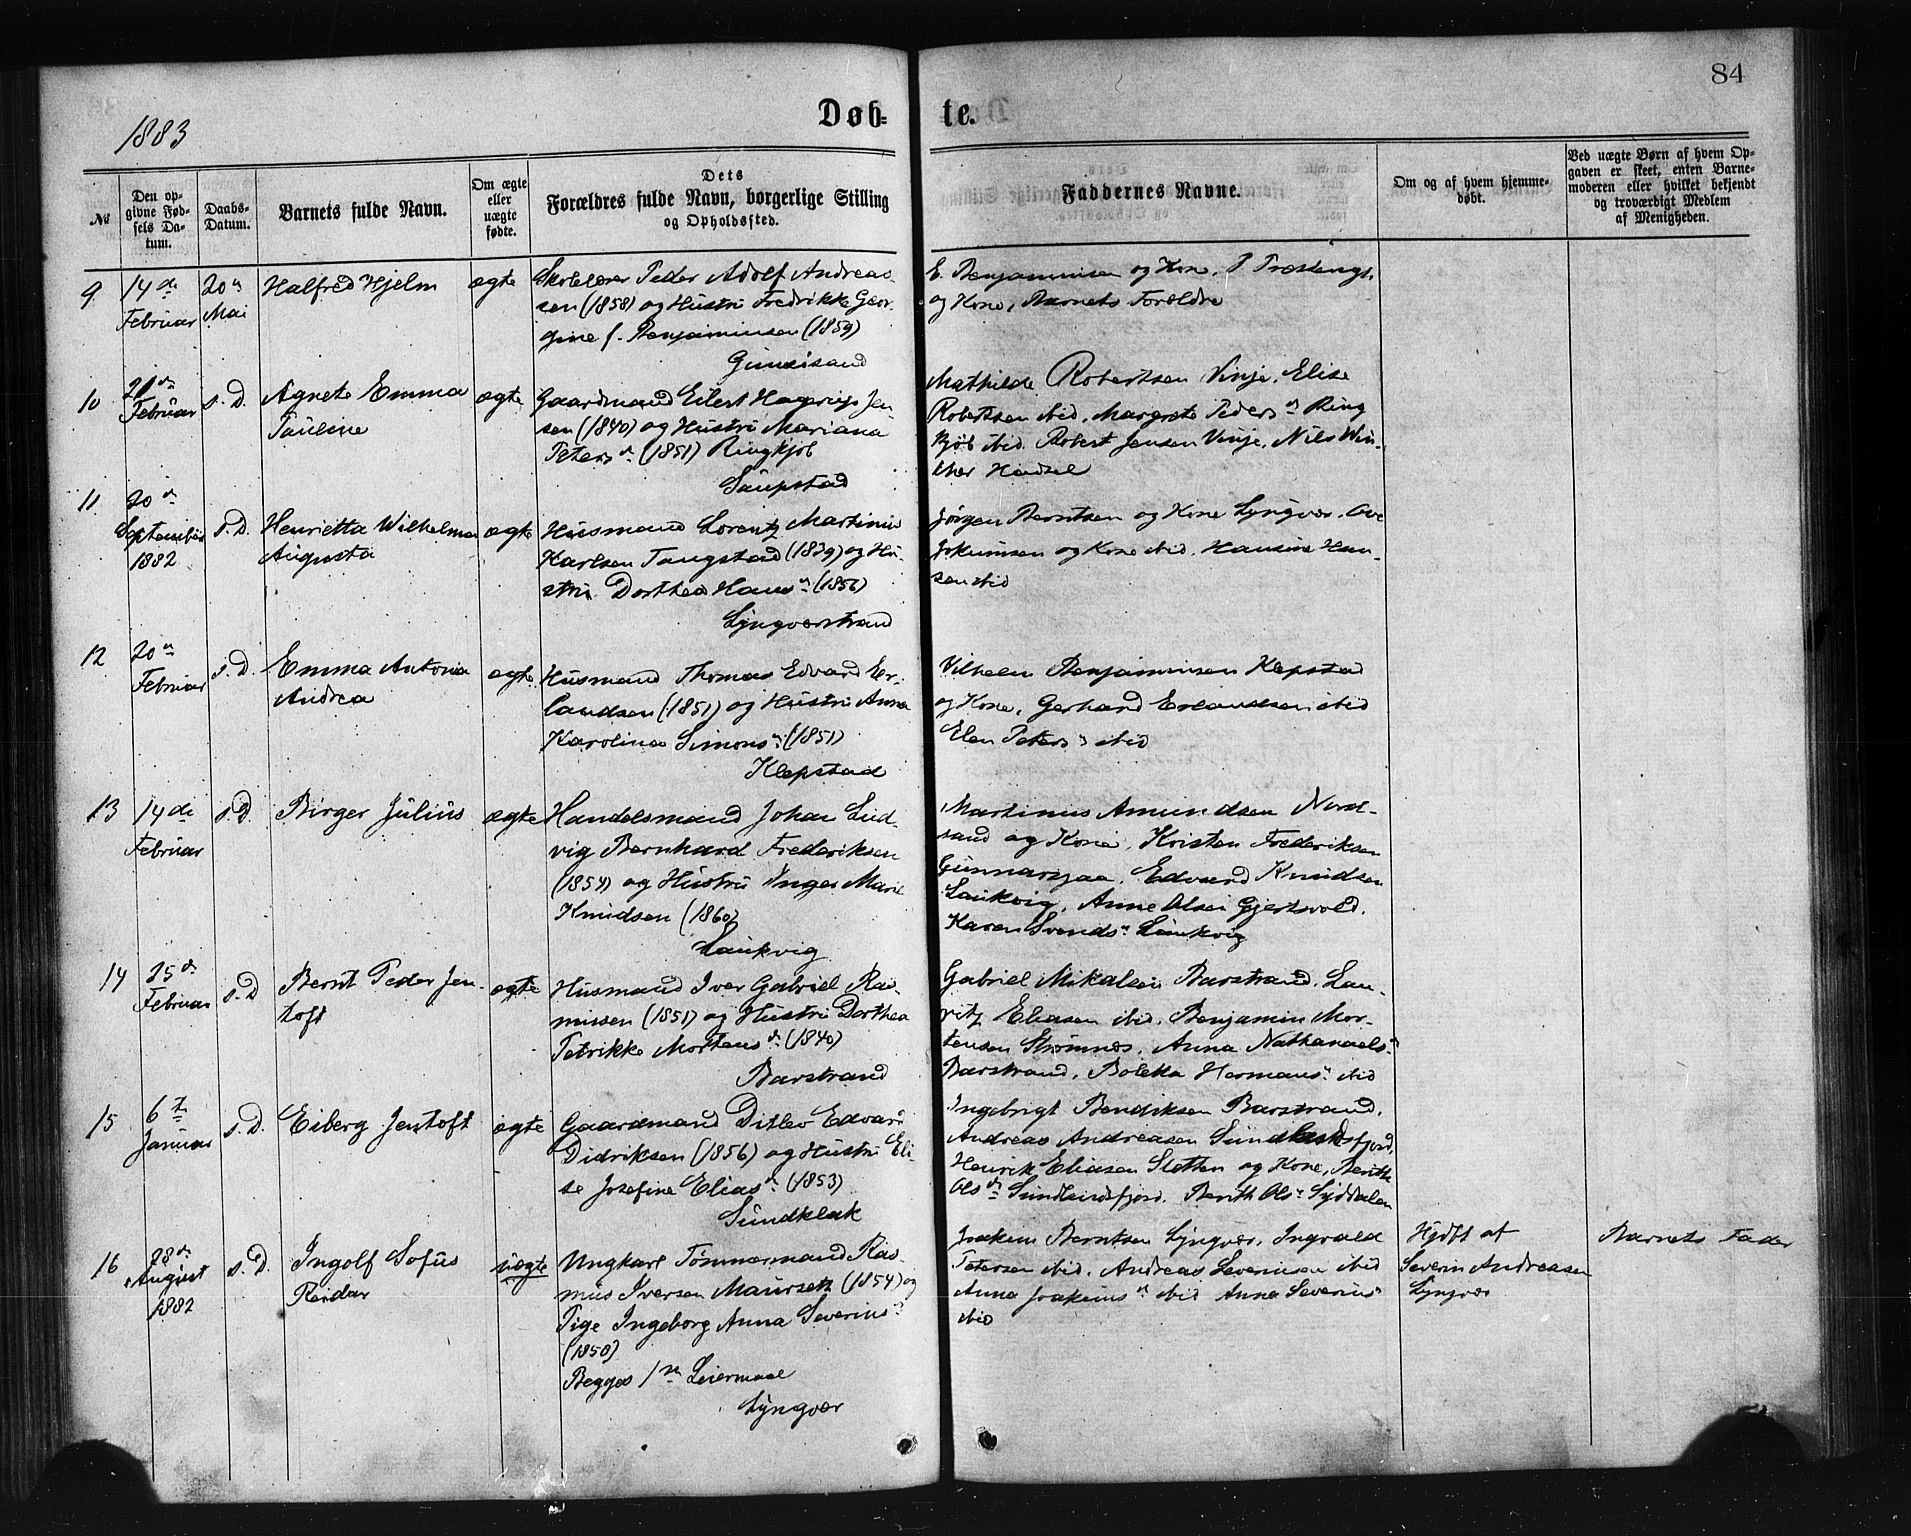 84
Døb-te.
1883
№
Den opgivne Fødsels Datum.
Daabs-Datum.
Barnets fulde Navn.
Om ægte eller uægte fødte.
Dets Forældres fulde Navn, borgerlige Stilling og Opholdssted.
Faddernes Navne.
Om og af hvem hjemmedøbt.
Ved uægte Børn af hvem Opgaven er skeet, enten Barnemoderen eller hvilket bekjendt og troværdigt Medlem af Menigheden.
9
14de Februar
20n Mai
Halfred Hjelm
ægte
Skolelærer Peder Adolf Andreas-
sen (1858) og Hustru Fredrikke Geor-
gine f. Benjaminsen (1859)
Gimsisand
E. Benjaminsen og Kone,
og Kone, Barnets Forældre
10
21de Februar
s. D.
Agnete Emma
Pauline
ægte
Gaardmand Eilert Jen-
sen (1840) og Hustru Mariana
Petersd. (1851) Ringkjøb
Saupstad
Mathilde Robertsen Vinje, Elise
Robertsen ibid, Margrete Pedersd. Ring
kjøb ibid. Robert Jensen Vinje, Nils Win-
ther Hadsel
11
20de September 1882
s. D.
Henrietta Wilhelma
Augusta
ægte
Husmand Lorentz Martinus
Karlsen Tangstad (1829) og Hu-
stru Dorthea Hansd. (1856)
Lyngværstrand
Jørgen Berntsen og Kone Lyngvær, Ove
Jokumsen og Kone ibid. Hansine Han-
sen ibid
12
20de Februar
s. D.
Emma Antona
Andrea
ægte
Husmand Thomas Edvard Er-
landsen (1851) og Hustru Anna
Karolina Simonsd. (1851)
Klepstad
Vilhelm Benjaminsen Klepstad
og Kone, Gerhard Erlandsen ibid
Elen Petersd. ibid
13
14de Februar
s. D.
Birger Julius
ægte
Handelsmand Johan Lud-
vig Bernhard Frederiksen
(1854) og Hustru Inger Marie
Knudsen (1860)
Laukvig
Martinus Amundsen Nord-
sand og Kone, Kristen Frederiksen
Gunnarsjaa, Edvard Knudsen
Laukvig, Anne Olsen Gjertsvold.
Karen Svendsd. Laukvig
14
25de Februar
s. D
Bernt Peder Jen-
toft
ægte
Husmand Iver Gabriel Ras-
mussen (1851) og Hustru Dorthea
Petrikke Mortensd. (1840)
Barstrand
Gabriel Mikalsen Barstrand, Lau-
ritz Eliasen ibid, Benjamin Mor-
tensen Strømnes, Anna Nathanaelsd.
Barstrand, Boletta Hermansd. ibid
15
6te Januar
s. D.
Eiberg Jentoft
ægte
Gaardmand Ditlev Edvard
Didriksen (1856) og Hustru Eli-
se Josefine Eliasd. (1853)
Sundklak
Ingebrigt Bendiksen Barstrand,
Andreas Andreasen Sundlandsfjord,
Henrik Eliasen Slotten og Kone, Berith
Olsd. Sundlandsfjord. Berith Olsd. Syddalen
16
28de August 1882
s. D.
Ingolf Sofus
Reidar
uægte
Ungkarl Tømmermand Ras-
mus Iversen Maurseth (1854) og
Pige Ingeborg Anna Severinsd.
(1850)
Begges 1ste Leiermaal
Lyngvær
Joakim Berntsen Lyngvær, Ingvald
Petersen ibid, Andreas Severinsen ibid
Anna Joakimsd. ibid Anna Severinsd.
ibid
Hjdbt af
Severin Andreasen
Lyngvær
Barnets Fader